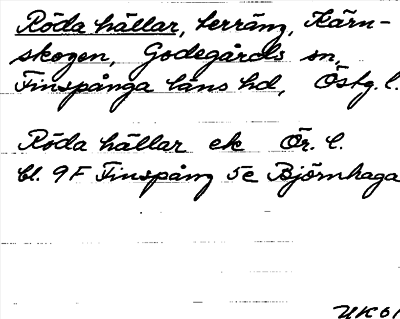 Röda hällar, terräng, Kärn-
skogen, Godegårds sn,
Finspånga läns hd, Östg. l.
Röda hällar ek Ör. l.
bl. 9F Finspång 5e Björnhaga
UK 61